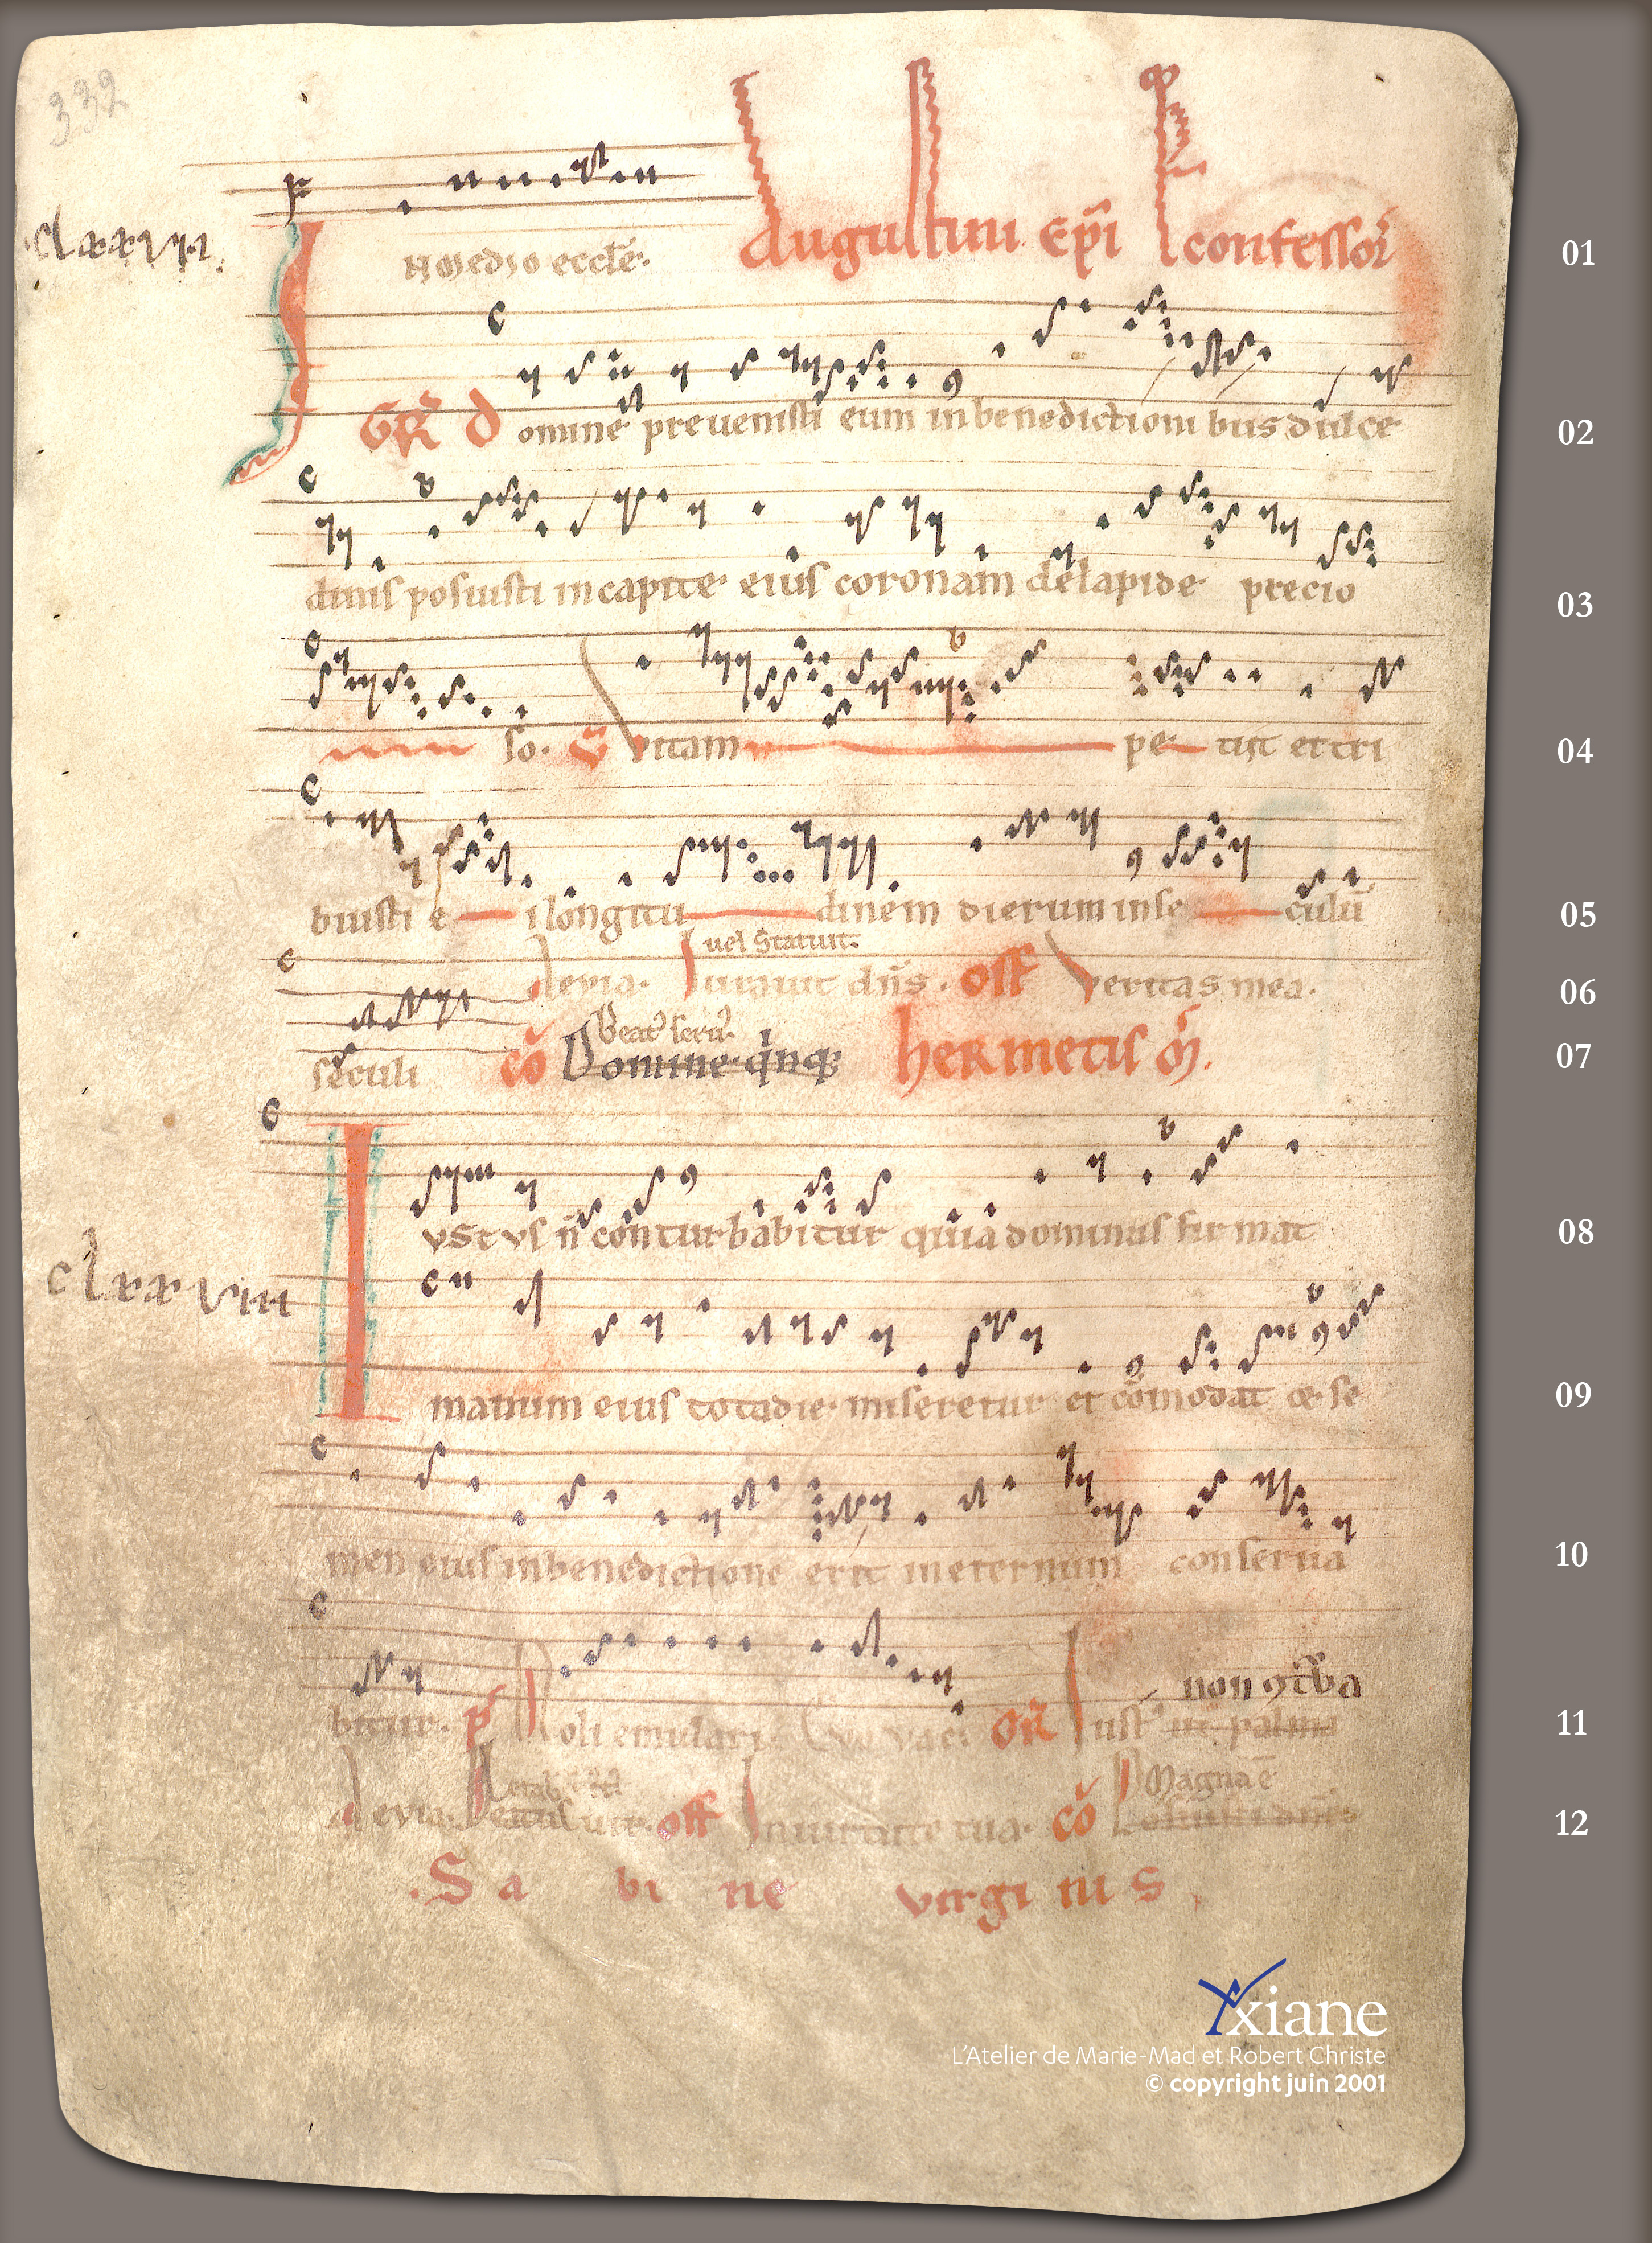 332
clxxvii.
IN medio eccle. Augustini Epi confessor 01
GR Domine prevenisti eum in benedictionibus dulce 02
dinis posuisti in capite eius coronam de lapide precio 03
so. V Vitam petiit et tri 04
buisti ei longitudinem dierum in se culu 05
vel Statuit.
Alevia. Iuravit dns. Off Veritas mea. 06
Beat serv.
seculi co Domine qnq hermetis m. 07
IVSTVS n conturbabitur quia dominus firmat 08
clxxviii
manum eius tota die miseretur et comodat & se 09
men eius in benedictione erit in eternum conserva 10
non 9tba
bitur. p Noli emulari. Evovae. GR Iust ut palma 11
Magna e
Alevia. Beatus vir. off In virtute tua. co 12
.Sabine virginis.
Yxiane
L'Atelier de Marie-Mad et Robert Christe
© copyright juin 2001